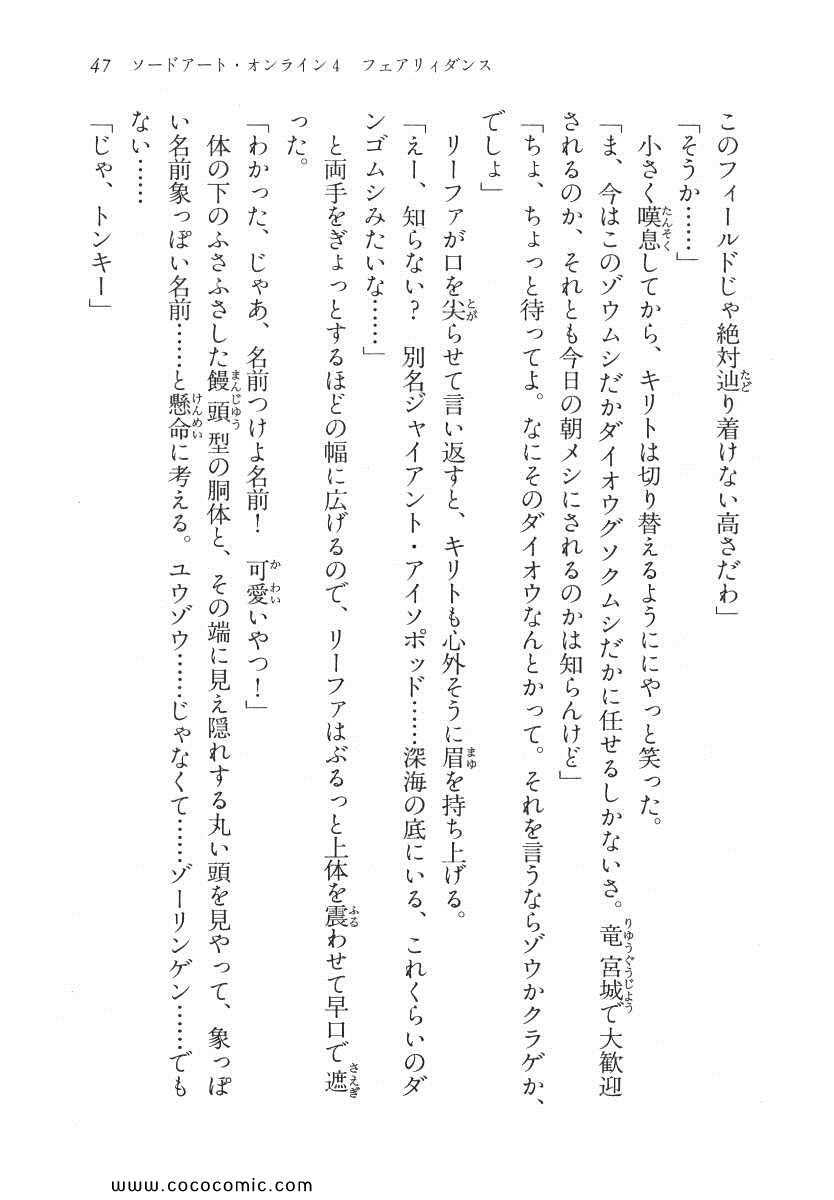 47　ソードアート・オンライン4　フェアリィダンス
このフィールドじゃ絶対辿り着けない高さだわ」
「そうか……」
　小さく嘆息してから、キリトは切り替えるようににやっと笑った。
「ま、今はこのゾウムシだかダイオウグソクムシだかに任せるしかないさ。竜宮城で大歓迎
されるのか、それとも今日の朝メシにされるのかは知らんけど」
「ちょ、ちょっと待ってよ。なにそのダイオウなんとかって。それを言うならゾウかクラゲか、
でしょ」
　リーファが口を尖らせて言い返すと、キリトも心外そうに眉を持ち上げる。
「えー、知らない？　別名ジャイアント・アイソポッド……深海の底にいる、これくらいのダ
ンゴムシみたいな……」
　と両手をぎょっとするほどの幅に広げるので、リーファはぶるっと上体を震わせて早口で遮
った。
「わかった、じゃあ、名前つけよ名前！　可愛いやつ！」
　体の下のふさふさした饅頭型の胴体と、その端に見え隠れする丸い頭を見やって、象っぽ
い名前象っぽい名前……と懸命に考える。ユウゾウ……じゃなくて……ゾーリンゲン……でも
ない……
「じゃ、トンキー」
www.cococomic.com